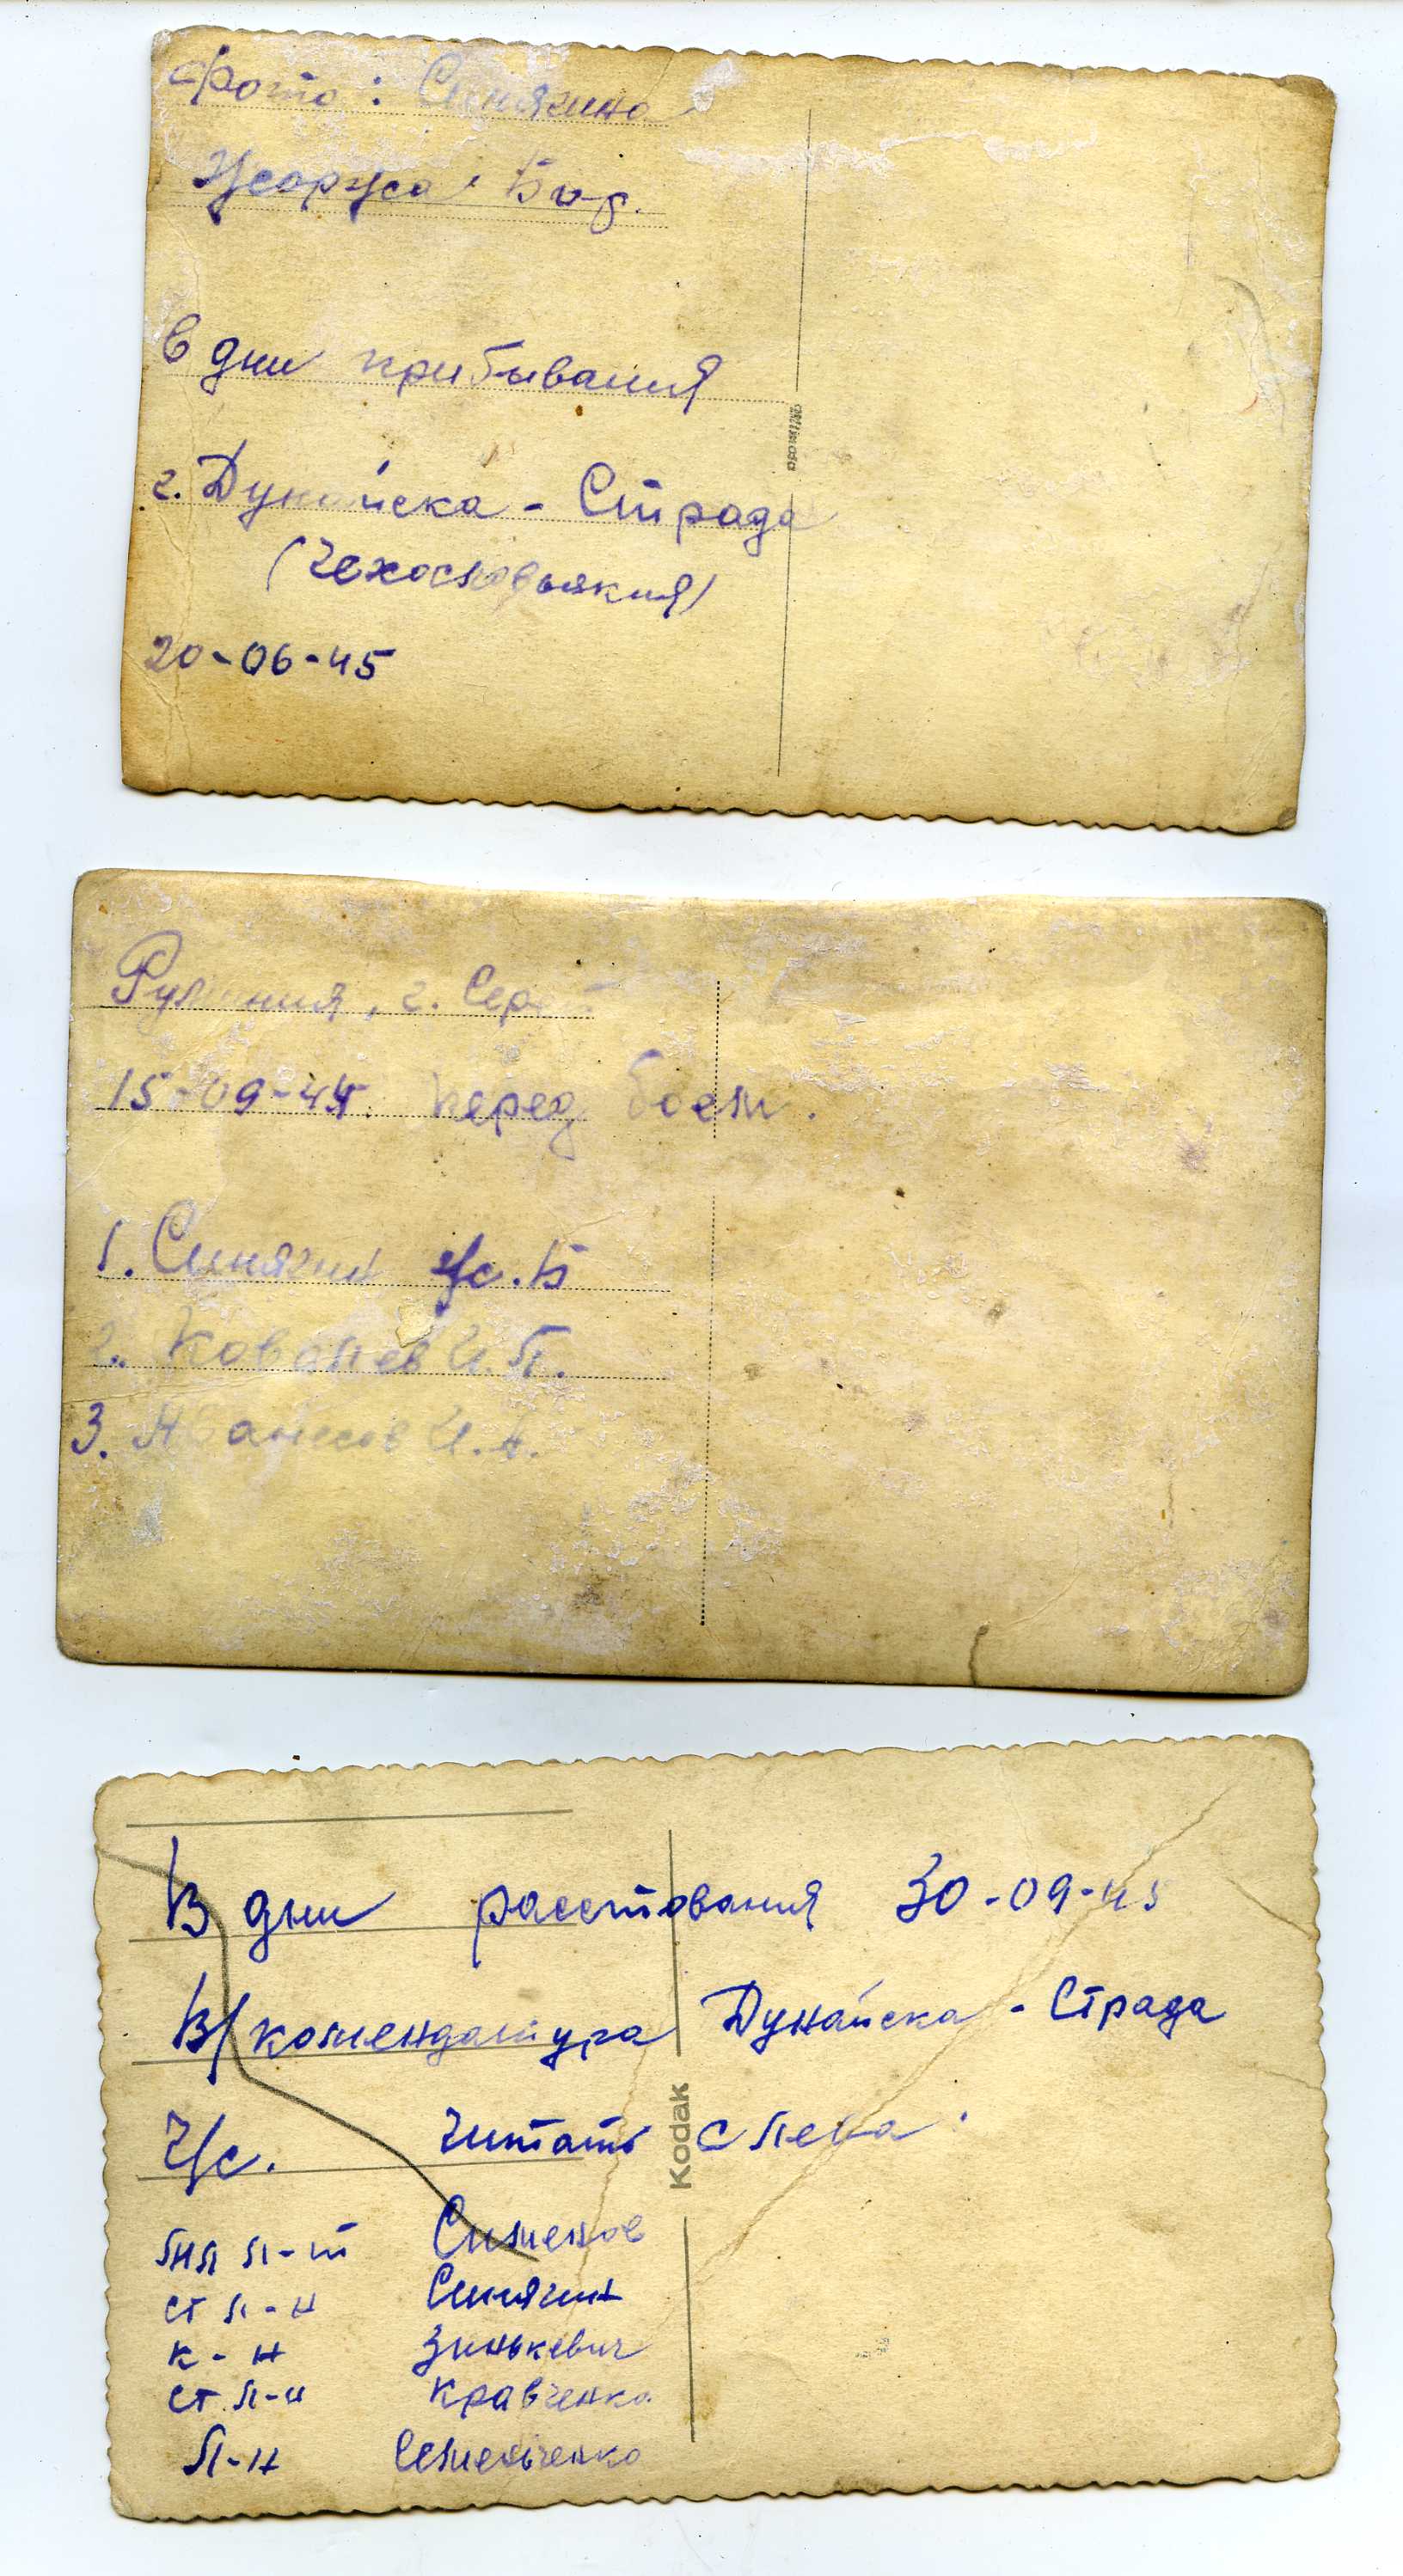 Фото: Синягина
Жоржа Бор.
В дни прибывания
г. Дунайска - Страда
(Чехословьякия)
20-06-45
Mimosa
Румыния, г.
15-09-44. перед боем.
1. Синягин Ж.Б
2. Ковалев И.П.
3. Аванесов И.А.
В дни расстования 30-09-45
В/комендатура Дунайска - Страда
Ч/с. Читать слева
Kodak
мл л-т Сименов
ст л-н Синягин
к-н Зинькевич
ст. л-н Кравченко
Л-н Семенченко